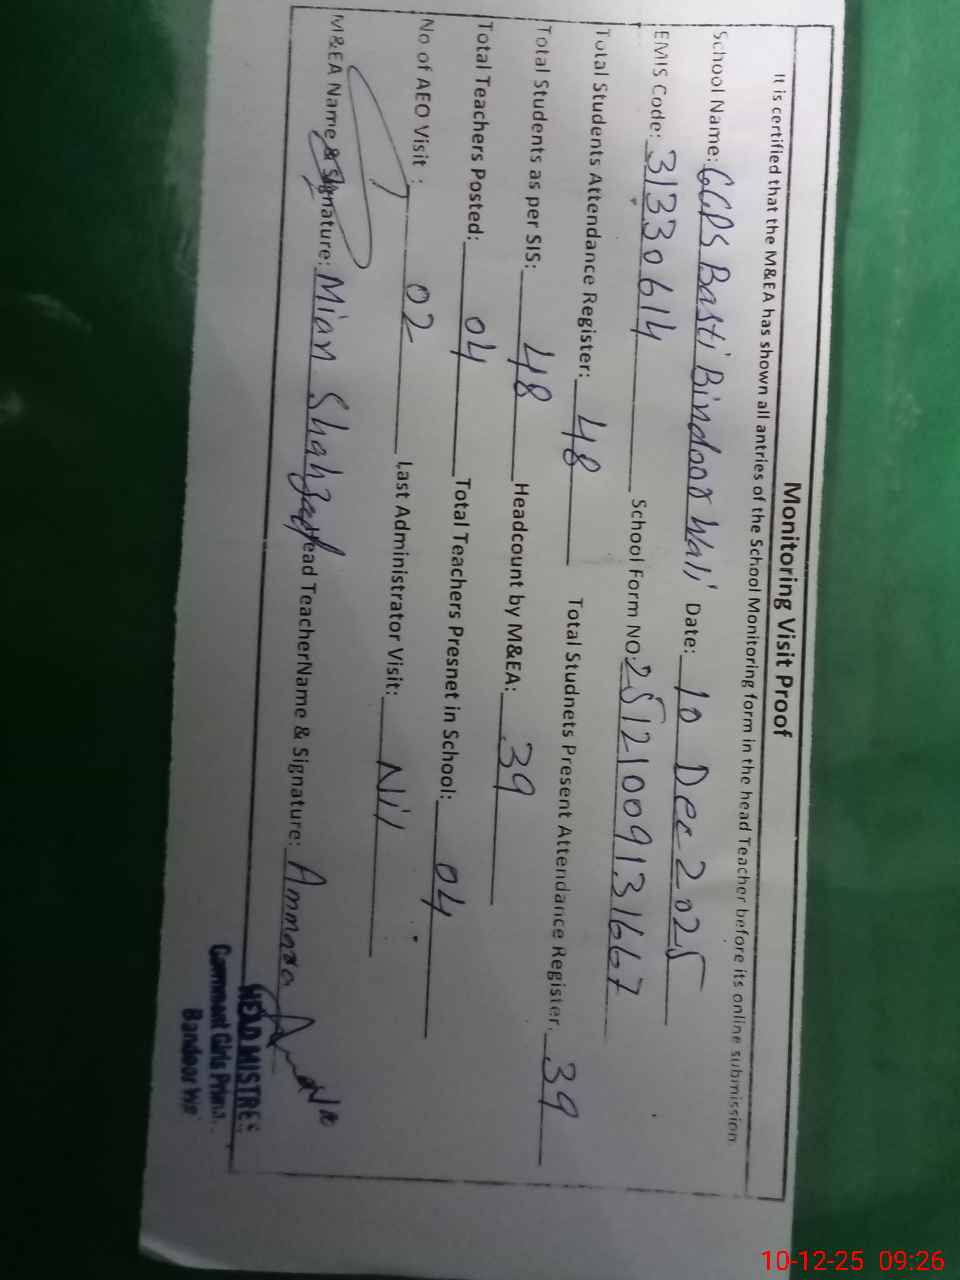 Monitoring Visit Proof
It is certified that the M&EA has shown all antries of the School Monitoring form in the head Teacher before its online submission.
School Name: GGPS Basti Bindoor Wali Date: 10 Dec 2025
EMIS Code: 31330614 School Form NO: 25121009131667
Total Students Attendance Register: 48 Total Studnets Present Attendance Register. 39
Total Students as per SIS: 48 Headcount by M&EA: 39
Total Teachers Posted: 04 Total Teachers Presnet in School: 04
No of AEO Visit : 02 Last Administrator Visit: Nil
M&EA Name & Signature: Mian Shahzad Head TeacherName & Signature: Ammara
HEAD MISTRES
Government Girls Prim
Bandoor
10-12-25 09:26